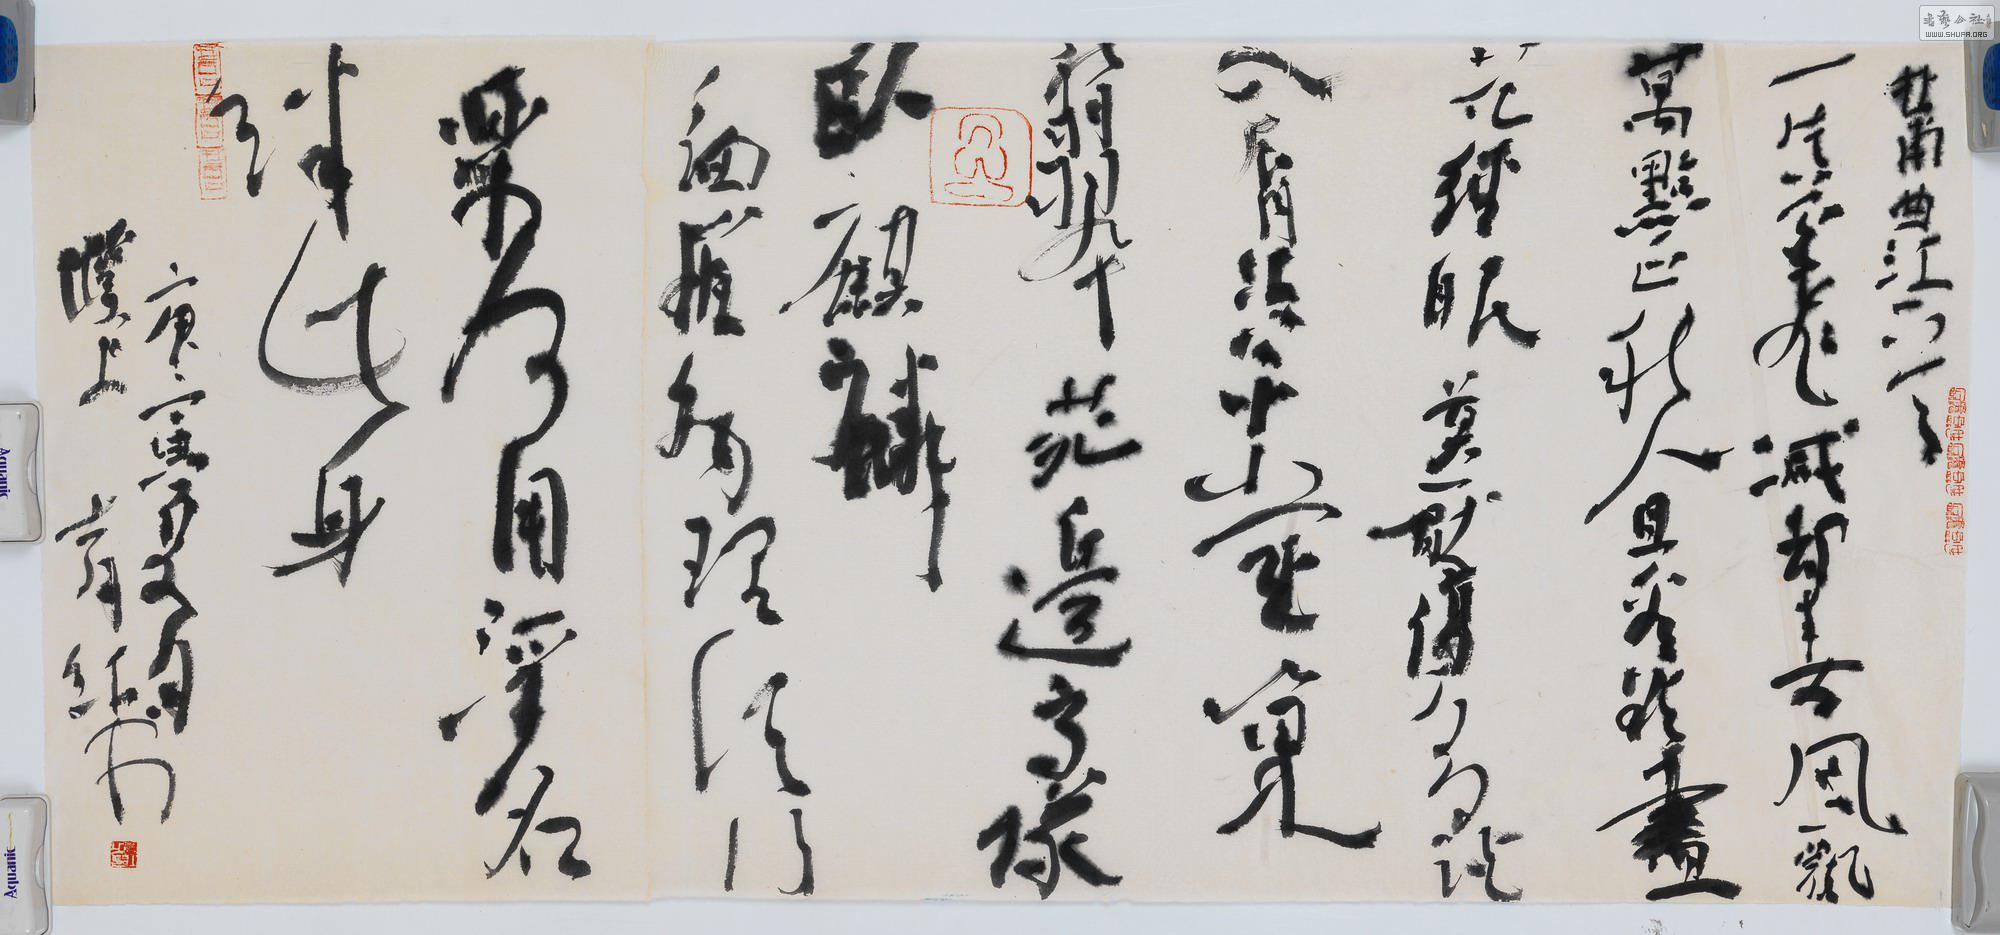 杜甫曲江
一片花飛減却春風飄
萬點正愁人且看欲盡
花經眼莫厭傷多酒
入唇江上小堂巢
翡翠苑邊高塚
臥麒麟
細推物理須行
樂何用浮名
絆此身
庚寅
濮上
书艺公社
WWW.SHUFA.ORG
Aquanic
Aquanic